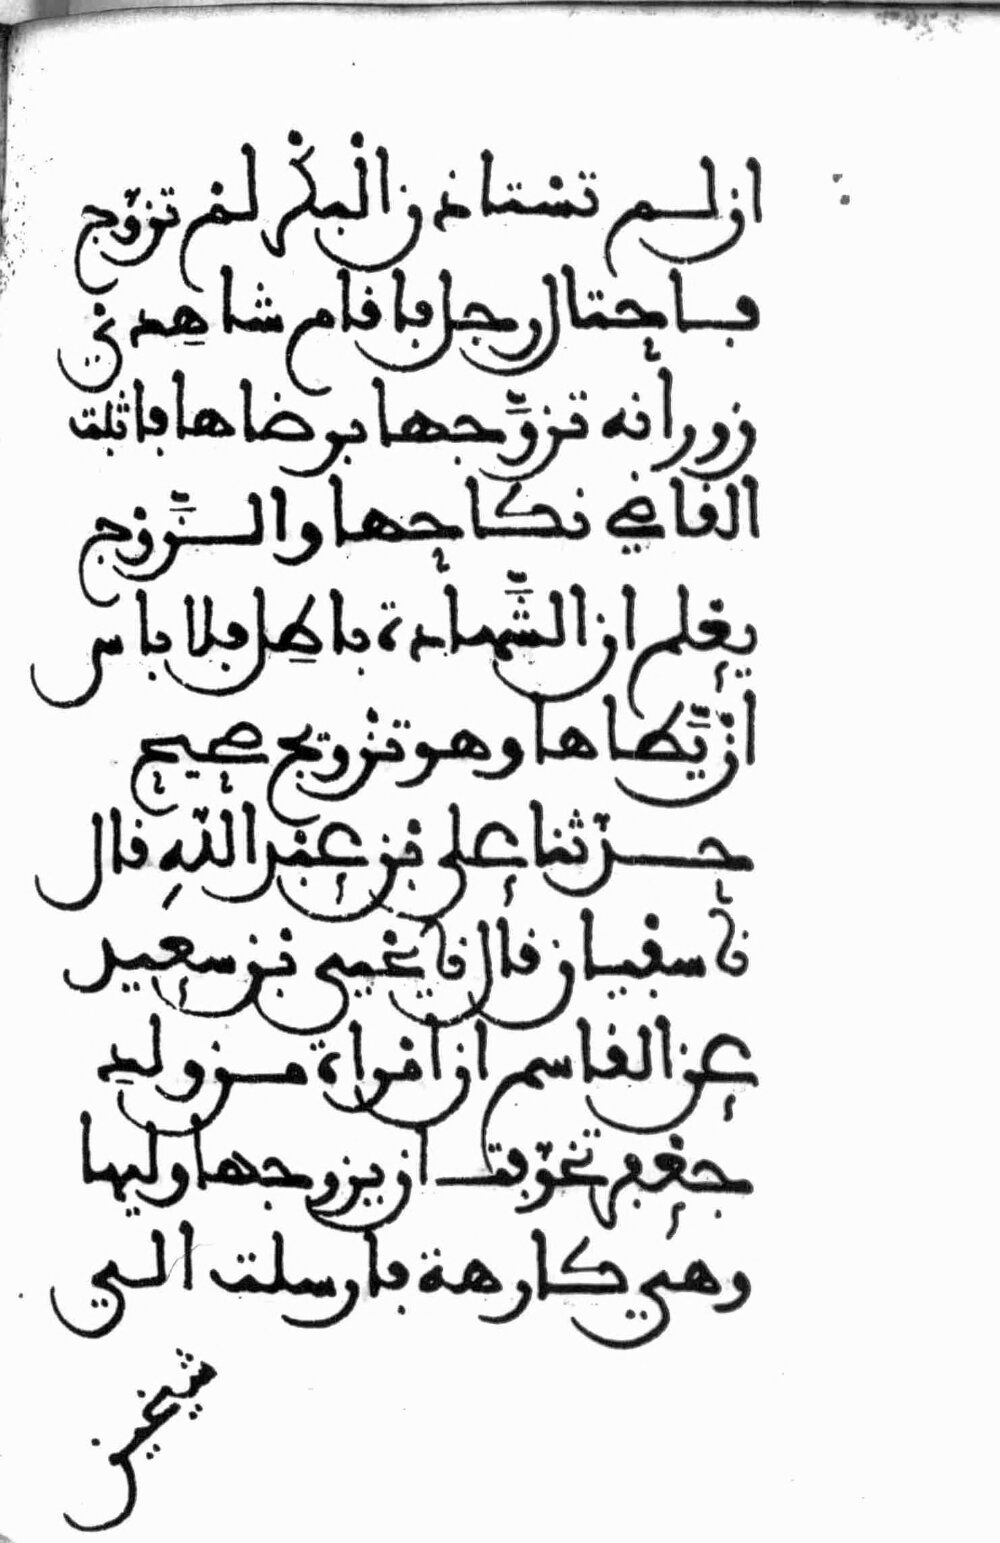 ان لم تستاذن البكر لم تزوج
فاحتال رجل فاقام شاهدي
زور انه تزوّجها برضاها فاثبت
القاضي نكاحها والزّوج
يعلم ان الشّهادة باطل فلا باس
ان يّطاها وهو تزويج صحيح
حدثنا علي بن عبد اللهِ قال
نا سفيان قال نا يحيى بن سعيد
عن القاسم ان امراة من ولد
جعفر تخوفت ان يزوجها وليها
وهي كارهة فارسلت الي
شيخين